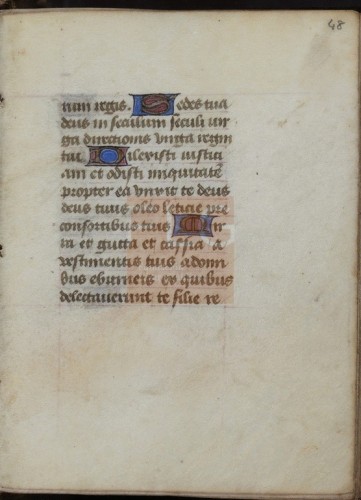 48
rum regis. Sedes tua
deus in seculum seculi vir
ga directionis virga regni
tui. Dilexisti iustici
am et odisti iniquitatē
propter ea unxit te deus
deus tuus oleo leticie pre
consortibus tuis Mir
ra et gutta et cassia a
vestimentis tuis a domi
bus eburneis ex quibus
delectaverunt te filie re